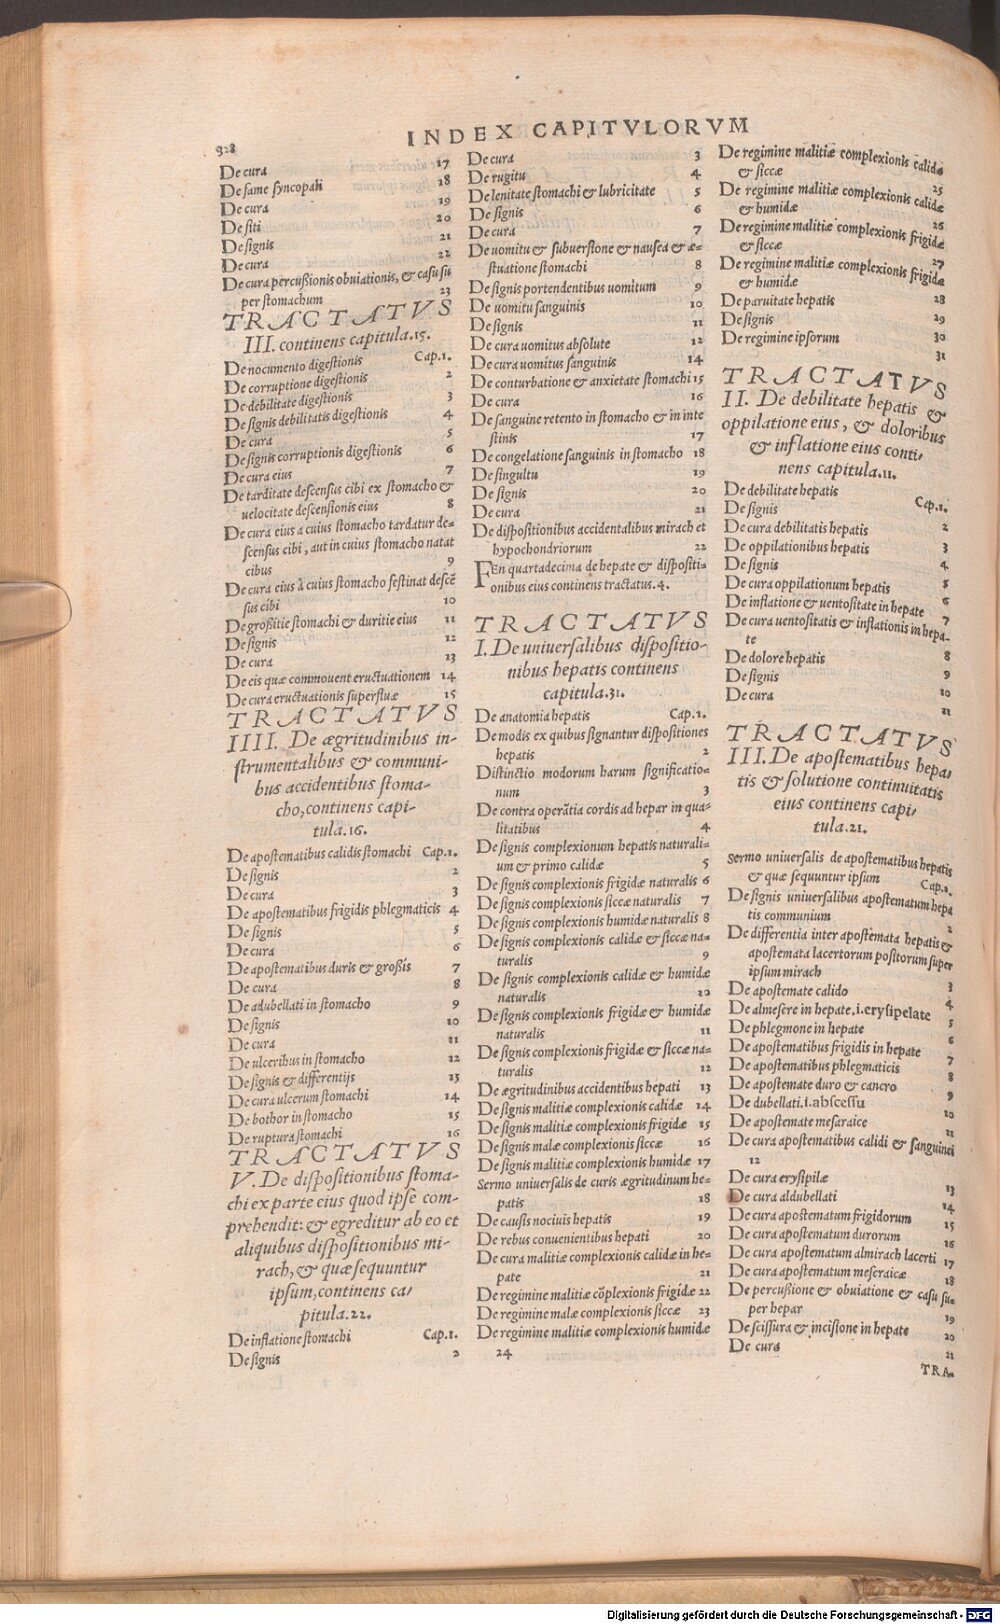 928
INDEX CAPITVLORVM
De cura 17
De fame syncopali 18
De cura 19
De siti 20
De signis 21
De cura 22
De cura percußionis obuiationis, & casu su
per stomachum 23
TRACTATVS
III. continens capitula.15.
De nocumento digestionis Cap.1.
De corruptione digestionis 2
De debilitate digestionis 3
De signis debilitatis digestionis 4
De cura 5
De signis corruptionis digestionis 6
De cura eius 7
De tarditate descensus cibi ex stomacho &
uelocitate descensionis eius 8
De cura eius a cuius stomacho tardatur de=
scensus cibi, aut in cuius stomacho natat
cibus 9
De cura eius à cuius stomacho festinat descē
sus cibi 10
De großitie stomachi & duritie eius 11
De signis 12
De cura 13
De eis quæ commouent eructuationem 14
De cura eructuationis superfluæ 15
TRACTATVS
IIII. De ægritudinibus in-
strumentalibus & communi-
bus accidentibus stoma-
cho, continens capi-
tula.16.
De apostematibus calidis stomachi Cap.1.
De signis 2
De cura 3
De apostematibus frigidis phlegmaticis 4
De signis 5
De cura 6
De apostematibus duris & großis 7
De cura 8
De adubellati in stomacho 9
De signis 10
De cura 11
De ulceribus in stomacho 12
De signis & differentijs 13
De cura ulcerum stomachi 14
De bothor in stomacho 15
De ruptura stomachi 16
TRACTATVS
V. De dispositionibus stoma-
chi ex parte eius quod ipse com-
prehendit: & egreditur ab eo et
aliquibus dispositionibus mi-
rach, & quæ sequuntur
ipsum, continens ca,
pitula.22.
De inflatione stomachi Cap.1.
De signis 2
De cura 3
De rugitu 4
De lenitate stomachi & lubricitate 5
De signis 6
De cura 7
De uomitu & subuersione & nausea & æ=
stuatione stomachi 8
De signis portendentibus uomitum 9
De uomitu sanguinis 10
De signis 11
De cura uomitus absolute 12
De cura uomitus sanguinis 14
De conturbatione & anxietate stomachi 15
De cura 16
De sanguine retento in stomacho & in inte
stinis 17
De congelatione sanguinis in stomacho 18
De singultu 19
De signis 20
De cura 21
De dispositionibus accidentalibus mirach et
hypochondriorum 22
FEn quartadecima de hepate & dispositi-
onibus eius continens tractatus.4.
TRACTATVS
I. De uniuersalibus dispositio-
nibus hepatis continens
capitula.31.
De anatomia hepatis Cap.1.
De modis ex quibus signantur dispositiones
hepatis 2
Distinctio modorum harum significatio=
num 3
De contra operātia cordis ad hepar in qua=
litatibus 4
De signis complexionum hepatis naturali=
um & primo calidæ 5
De signis complexionis frigidæ naturalis 6
De signis complexionis siccæ naturalis 7
De signis complexionis humidæ naturalis 8
De signis complexionis calidæ & siccæ na=
turalis 9
De signis complexionis calidæ & humidæ
naturalis 10
De signis complexionis frigidæ & humidæ
naturalis 11
De signis complexionis frigidæ & siccæ na=
turalis 12
De ægritudinibus accidentibus hepati 13
De signis malitiæ complexionis calidæ 14
De signis malitiæ complexionis frigidæ 15
De signis malæ complexionis siccæ 16
De signis malitiæ complexionis humidæ 17
Sermo uniuersalis de curis ægritudinum he=
patis 18
De causis nociuis hepatis 19
De rebus conuenientibus hepati 20
De cura malitiæ complexionis calidæ in he=
pate 21
De regimine malitiæ cōplexionis frigidæ 22
De regimine malæ complexionis siccæ 23
De regimine malitiæ complexionis humidæ
24
De regimine malitiæ complexionis calidæ
& siccæ 25
De regimine malitiæ complexionis calidæ
& humidæ 26
De regimine malitiæ complexionis frigidæ
& siccæ 27
De regimine malitiæ complexionis frigidæ
& humidæ 28
De paruitate hepatis 29
De signis 30
De regimine ipsorum 31
TRACTATVS
II. De debilitate hepatis &
oppilatione eius, & doloribus
& inflatione eius conti,
nens capitula.11.
De debilitate hepatis Cap.1.
De signis 2
De cura debilitatis hepatis 3
De oppilationibus hepatis 4
De signis 5
De cura oppilationum hepatis 6
De inflatione & uentositate in hepate 7
De cura uentositatis & inflationis in hepa-
te 8
De dolore hepatis 9
De signis 10
De cura 11
TRACTATVS
III. De apostematibus hepa,
tis & solutione continuitatis
eius continens capi,
tula.21.
Sermo uniuersalis de apostematibus hepatis
& quæ sequuntur ipsum Cap.1.
De signis uniuersalibus apostematum hepa
tis communium 2
De differentia inter apostemata hepatis &
apostemata lacertorum positorum super
ipsum mirach 3
De apostemate calido 4
De almesere in hepate.i.erysipelate 5
De phlegmone in hepate 6
De apostematibus frigidis in hepate 7
De apostematibus phlegmaticis 8
De apostemate duro & cancro 9
De dubellati.i.abscessu 10
De apostemate mesaraice 11
De cura apostematibus calidi & sanguinei
12
De cura erysipilæ 13
De cura aldubellati 14
De cura apostematum frigidorum 15
De cura apostematum durorum 16
De cura apostematum almirach lacerti 17
De cura apostematum meseraicæ 18
De percußione & obuiatione & casu su=
per hepar 19
De scissura & incisione in hepate 20
De cura 21
TRA-
Digitalisierung gefördert durch die Deutsche Forschungsgemeinschaft - DFG